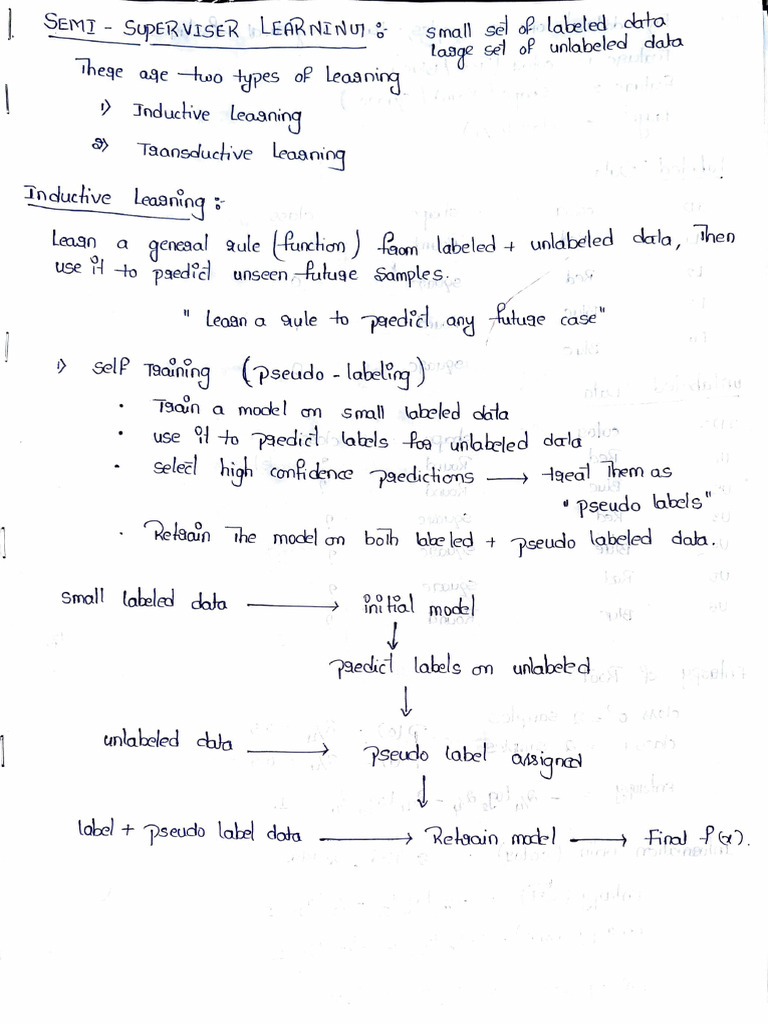 SEMI - SUPERVISER LEARNING :- small set of labeled data
large set of unlabeled data
There are two types of Learning
1) Inductive Learning
2) Transductive Learning
Inductive Learning :-
Learn a general rule (function) from labeled + unlabeled data, Then
use it to predict unseen future samples.
" Learn a rule to predict any future case"
1) Self Training (pseudo - labeling)
• Train a model on small labeled data
• use it to predict labels for unlabeled data
• select high confidence predictions → treat Them as
" pseudo labels"
• Retrain The model on both labeled + pseudo labeled data.
small labeled data → initial model
↓
predict labels on unlabeled
↓
unlabeled data → pseudo label assigned
↓
label + pseudo label data → Retrain model → Final f(x).